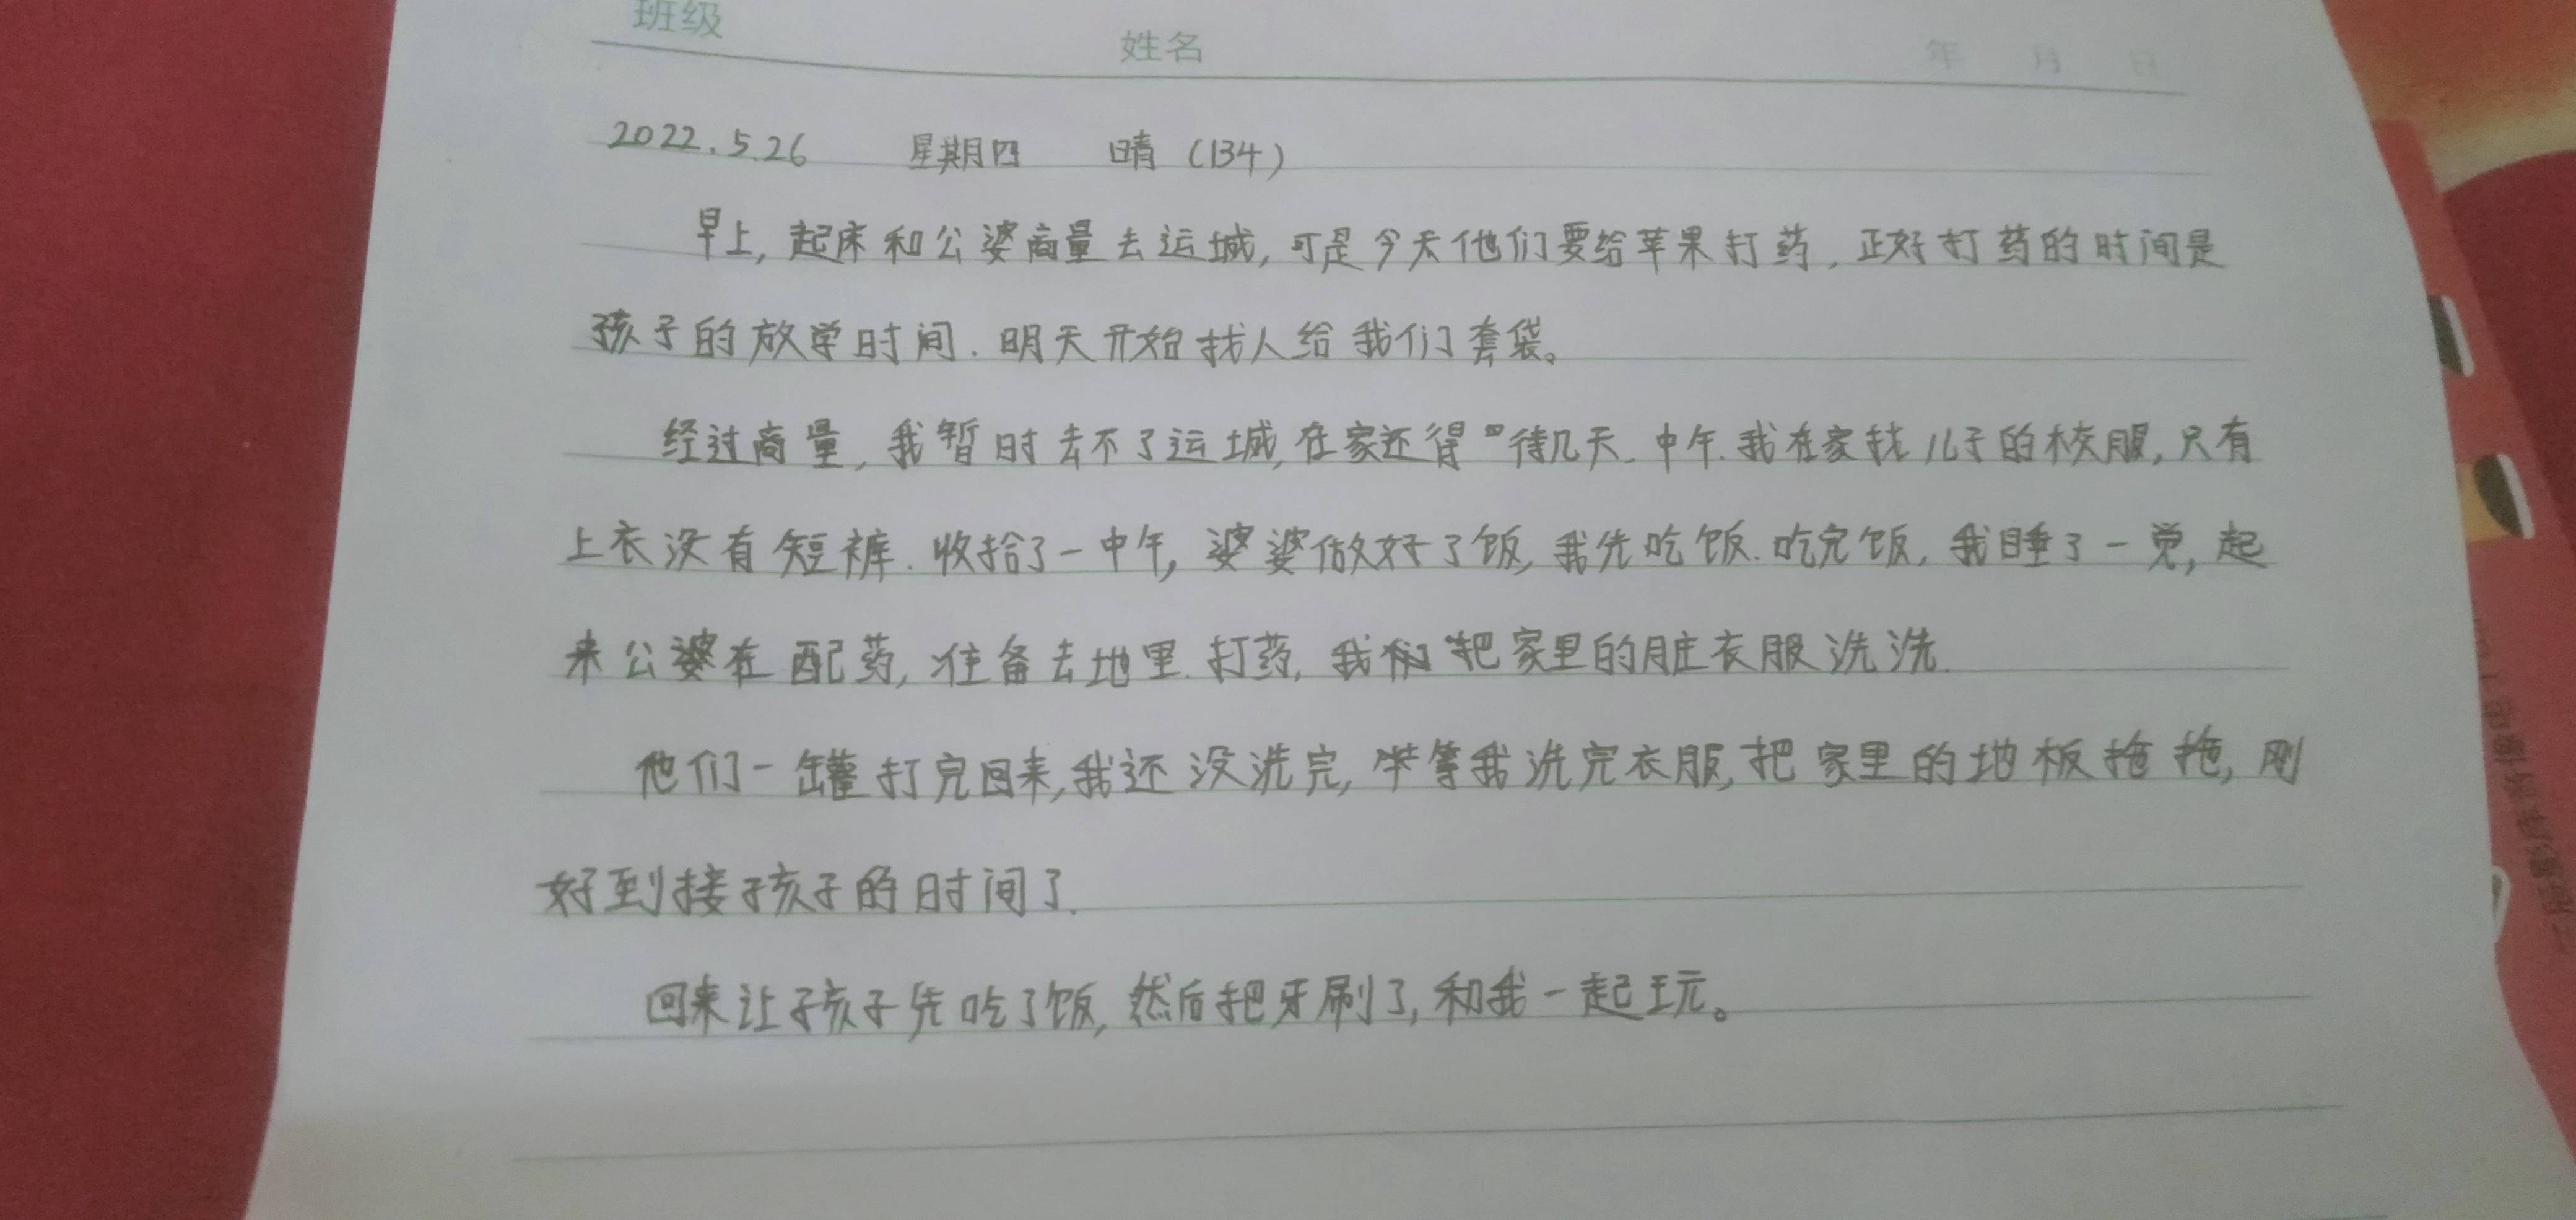 班级
姓名
年 月 日
2022.5.26 星期四 晴 (134)
早上,起床和公婆商量去运城,可是今天他们要给苹果打药,正好打药的时间是
孩子的放学时间.明天开始找人给我们套袋。
经过商量,我暂时去不了运城,在家还得待几天.中午.我在家找儿子的校服,只有
上衣没有短裤.收拾了一中午,婆婆做好了饭,我先吃饭.吃完饭,我睡了一觉,起
来公婆在配药,准备去地里.打药,我把家里的脏衣服洗洗.
他们一罐打完回来,我还没洗完,等我洗完衣服,把家里的地板拖拖,刚
好到接孩子的时间了.
回来让孩子先吃了饭,然后把牙刷了,和我一起玩。